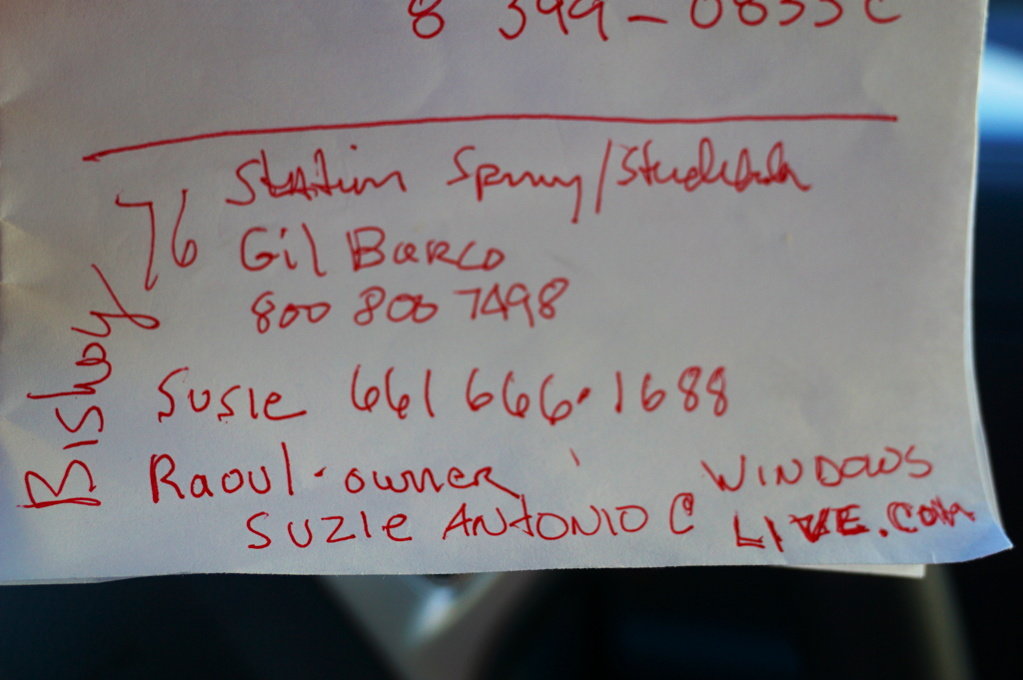 8 399-0855C
76 Station Spring/Studebak
Gil Barco
800 800 7498
Susie 661 666.1688
Raoul-owner
SUZIE ANTONIO C WINDOWS
LIVE.com